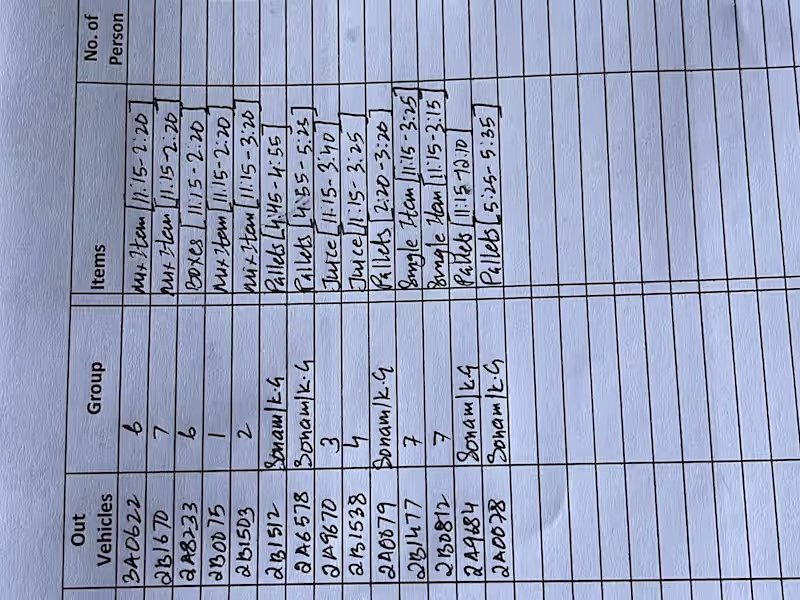 Out Vehicles Group Items No. of Person
3A0622 6 Mix Item [11:15-2:20]
2B1670 7 Mix Item [11:15-2:20]
2A8233 6 Boxes [11:15-2:20]
2B0075 1 Mix Item [11:15-2:20]
2B1503 2 Mix Item [11:15-3:20]
2B1512 Sonam/K.G Pallets [4:45-4:55]
2A6578 Sonam/K.G Pallets [4:55-5:25]
2A9670 3 Juice [11:15-3:40]
2B1538 4 Juice [11:15-3:25]
2A0079 Sonam/K.G Pallets [2:20-3:20]
2B1477 7 Single Item [11:15-3:25]
2B0812 7 Single Item [11:15-3:15]
2A9684 Sonam/K.G Pallets [11:15-12:10]
2A0078 Sonam/K.G Pallets [5:25-5:35]